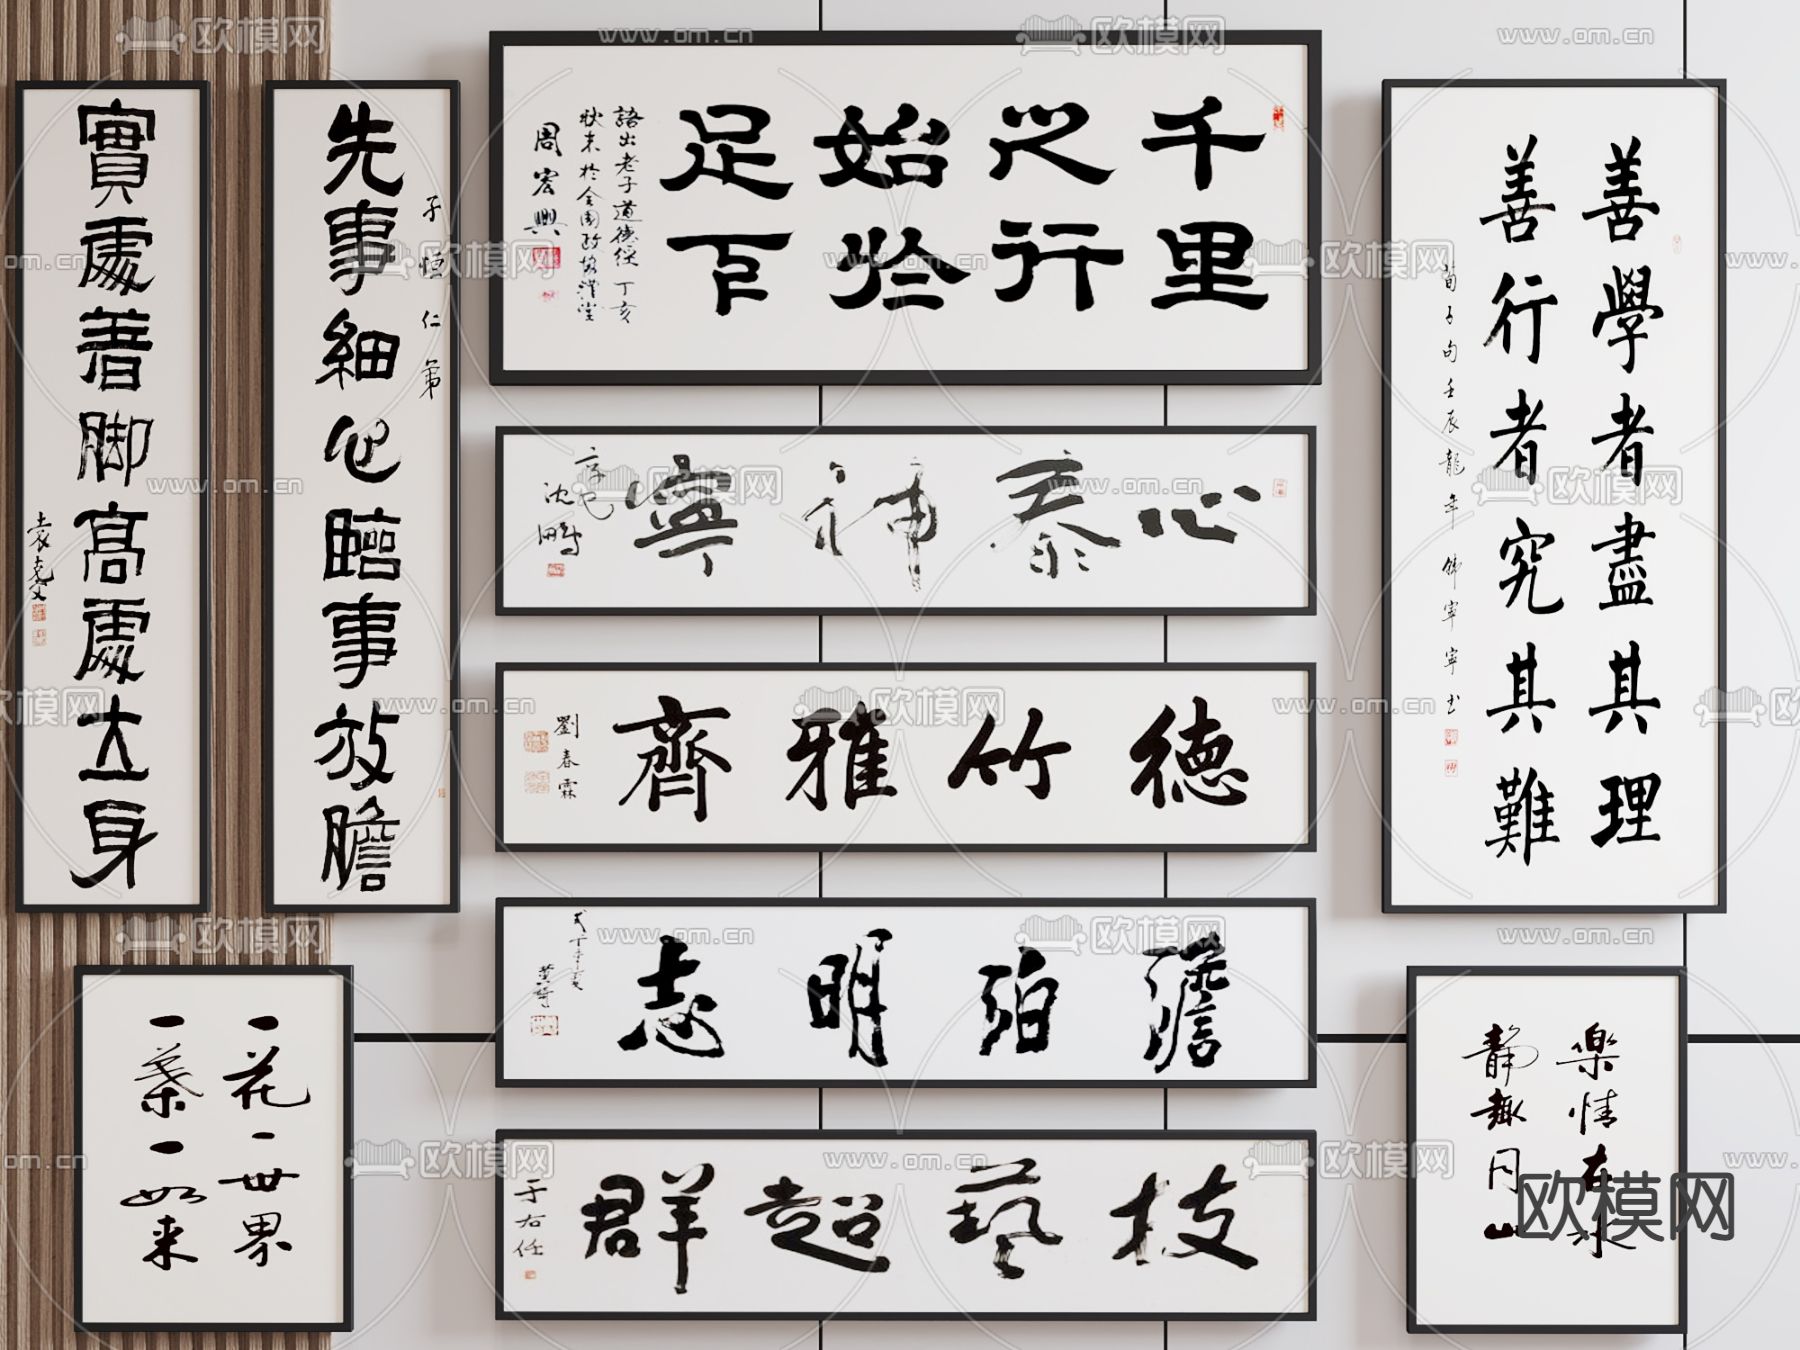 先事細心臨事放膽
子恒仁弟
實處著脚高處立身
袁克文
千里
之行
始於
足下
語出老子道德經 丁亥
秋末於全國政協禮堂
周宏興
心泰神寧
辛巳
沈鵬
德竹雅齊
劉春霖
澹泊明志
黃綺
技藝超群
于右任
善學者盡其理
善行者究其難
荀子句壬辰龍年 韩寧寧书
一花一世界
一葉一如来
樂情在水
靜趣同山
欧模网
www.om.cn